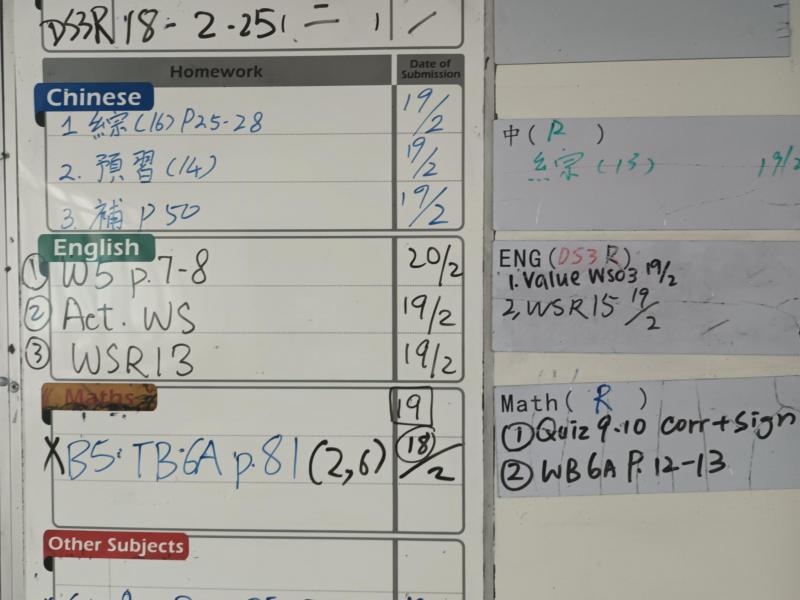 DS3R 18 - 2 - 251 = 1 /
Homework Date of Submission
Chinese
1 綜(16) P25-28 19/2
2. 預習(14) 19/2
3. 補 P 50 19/2
English
① W5 p.7-8 20/2
② Act. WS 19/2
③ WSR13 19/2
Maths 19
X B5: TB:6A p.81 (2,6) 18/2
Other Subjects
中( R )
綜(13) 19/2
ENG(DS3 R)
1. Value WS03 19/2
2, WSR15 19/2
Math( R )
① Quiz 9.10 corr+sign
② WB 6A P. 12-13